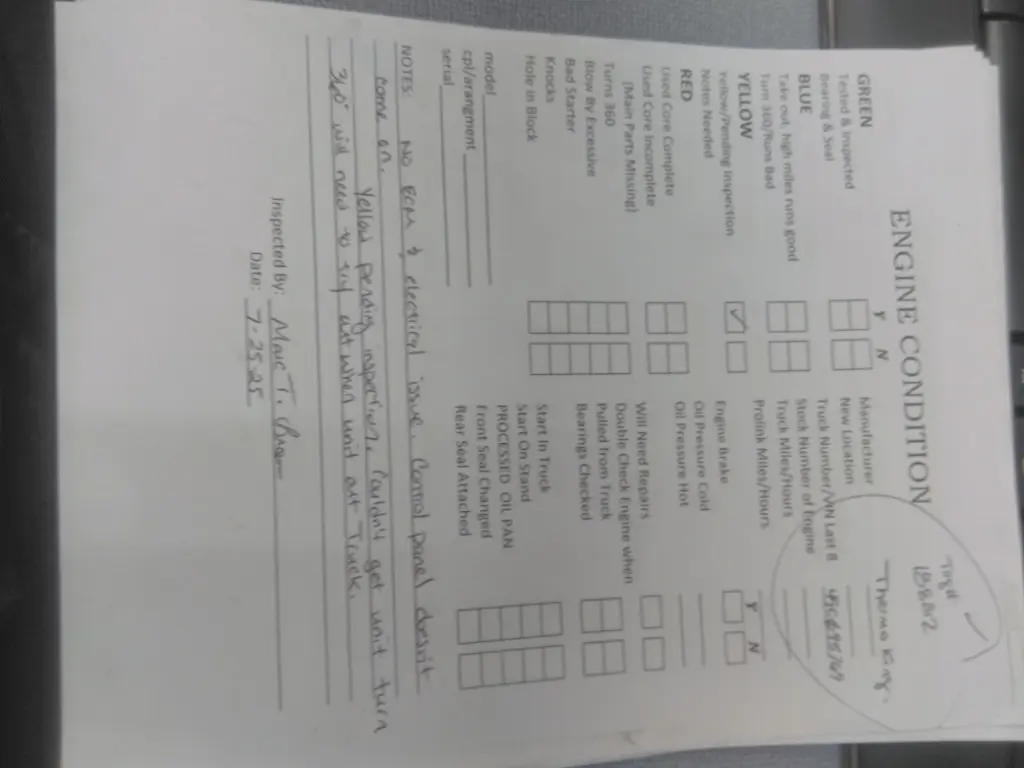 ENGINE CONDITION
Y N
GREEN
Tested & Inspected
Bearing & Seal
BLUE
Take out, high miles runs good
Turn 360/Runs Bad
YELLOW
Yellow/Pending Inspection
Notes Needed
RED
Used Core Complete
Used Core Incomplete
(Main Parts Missing)
Turns 360
Blow By Excessive
Bad Starter
Knocks
Hole in Block
model
cpl/arangment
serial
Manufacturer Thermo King
New Location
Truck Number/VIN Last 8
Stock Number of Engine
Truck Miles/Hours
Prolink Miles/Hours
Y N
Engine Brake
Oil Pressure Cold
Oil Pressure Hot
Will Need Repairs
Double Check Engine when
Pulled from Truck
Bearings Checked
Start In Truck
Start On Stand
PROCESSED OIL PAN
Front Seal Changed
Rear Seal Attached
NOTES: NO ECM & electrical issue. Control panel doesn't
come on. Yellow pending inspection. Couldn't get unit turn
360° will need to try again when unit off Truck.
Inspected By: Marc T.
Date: 7-25-25